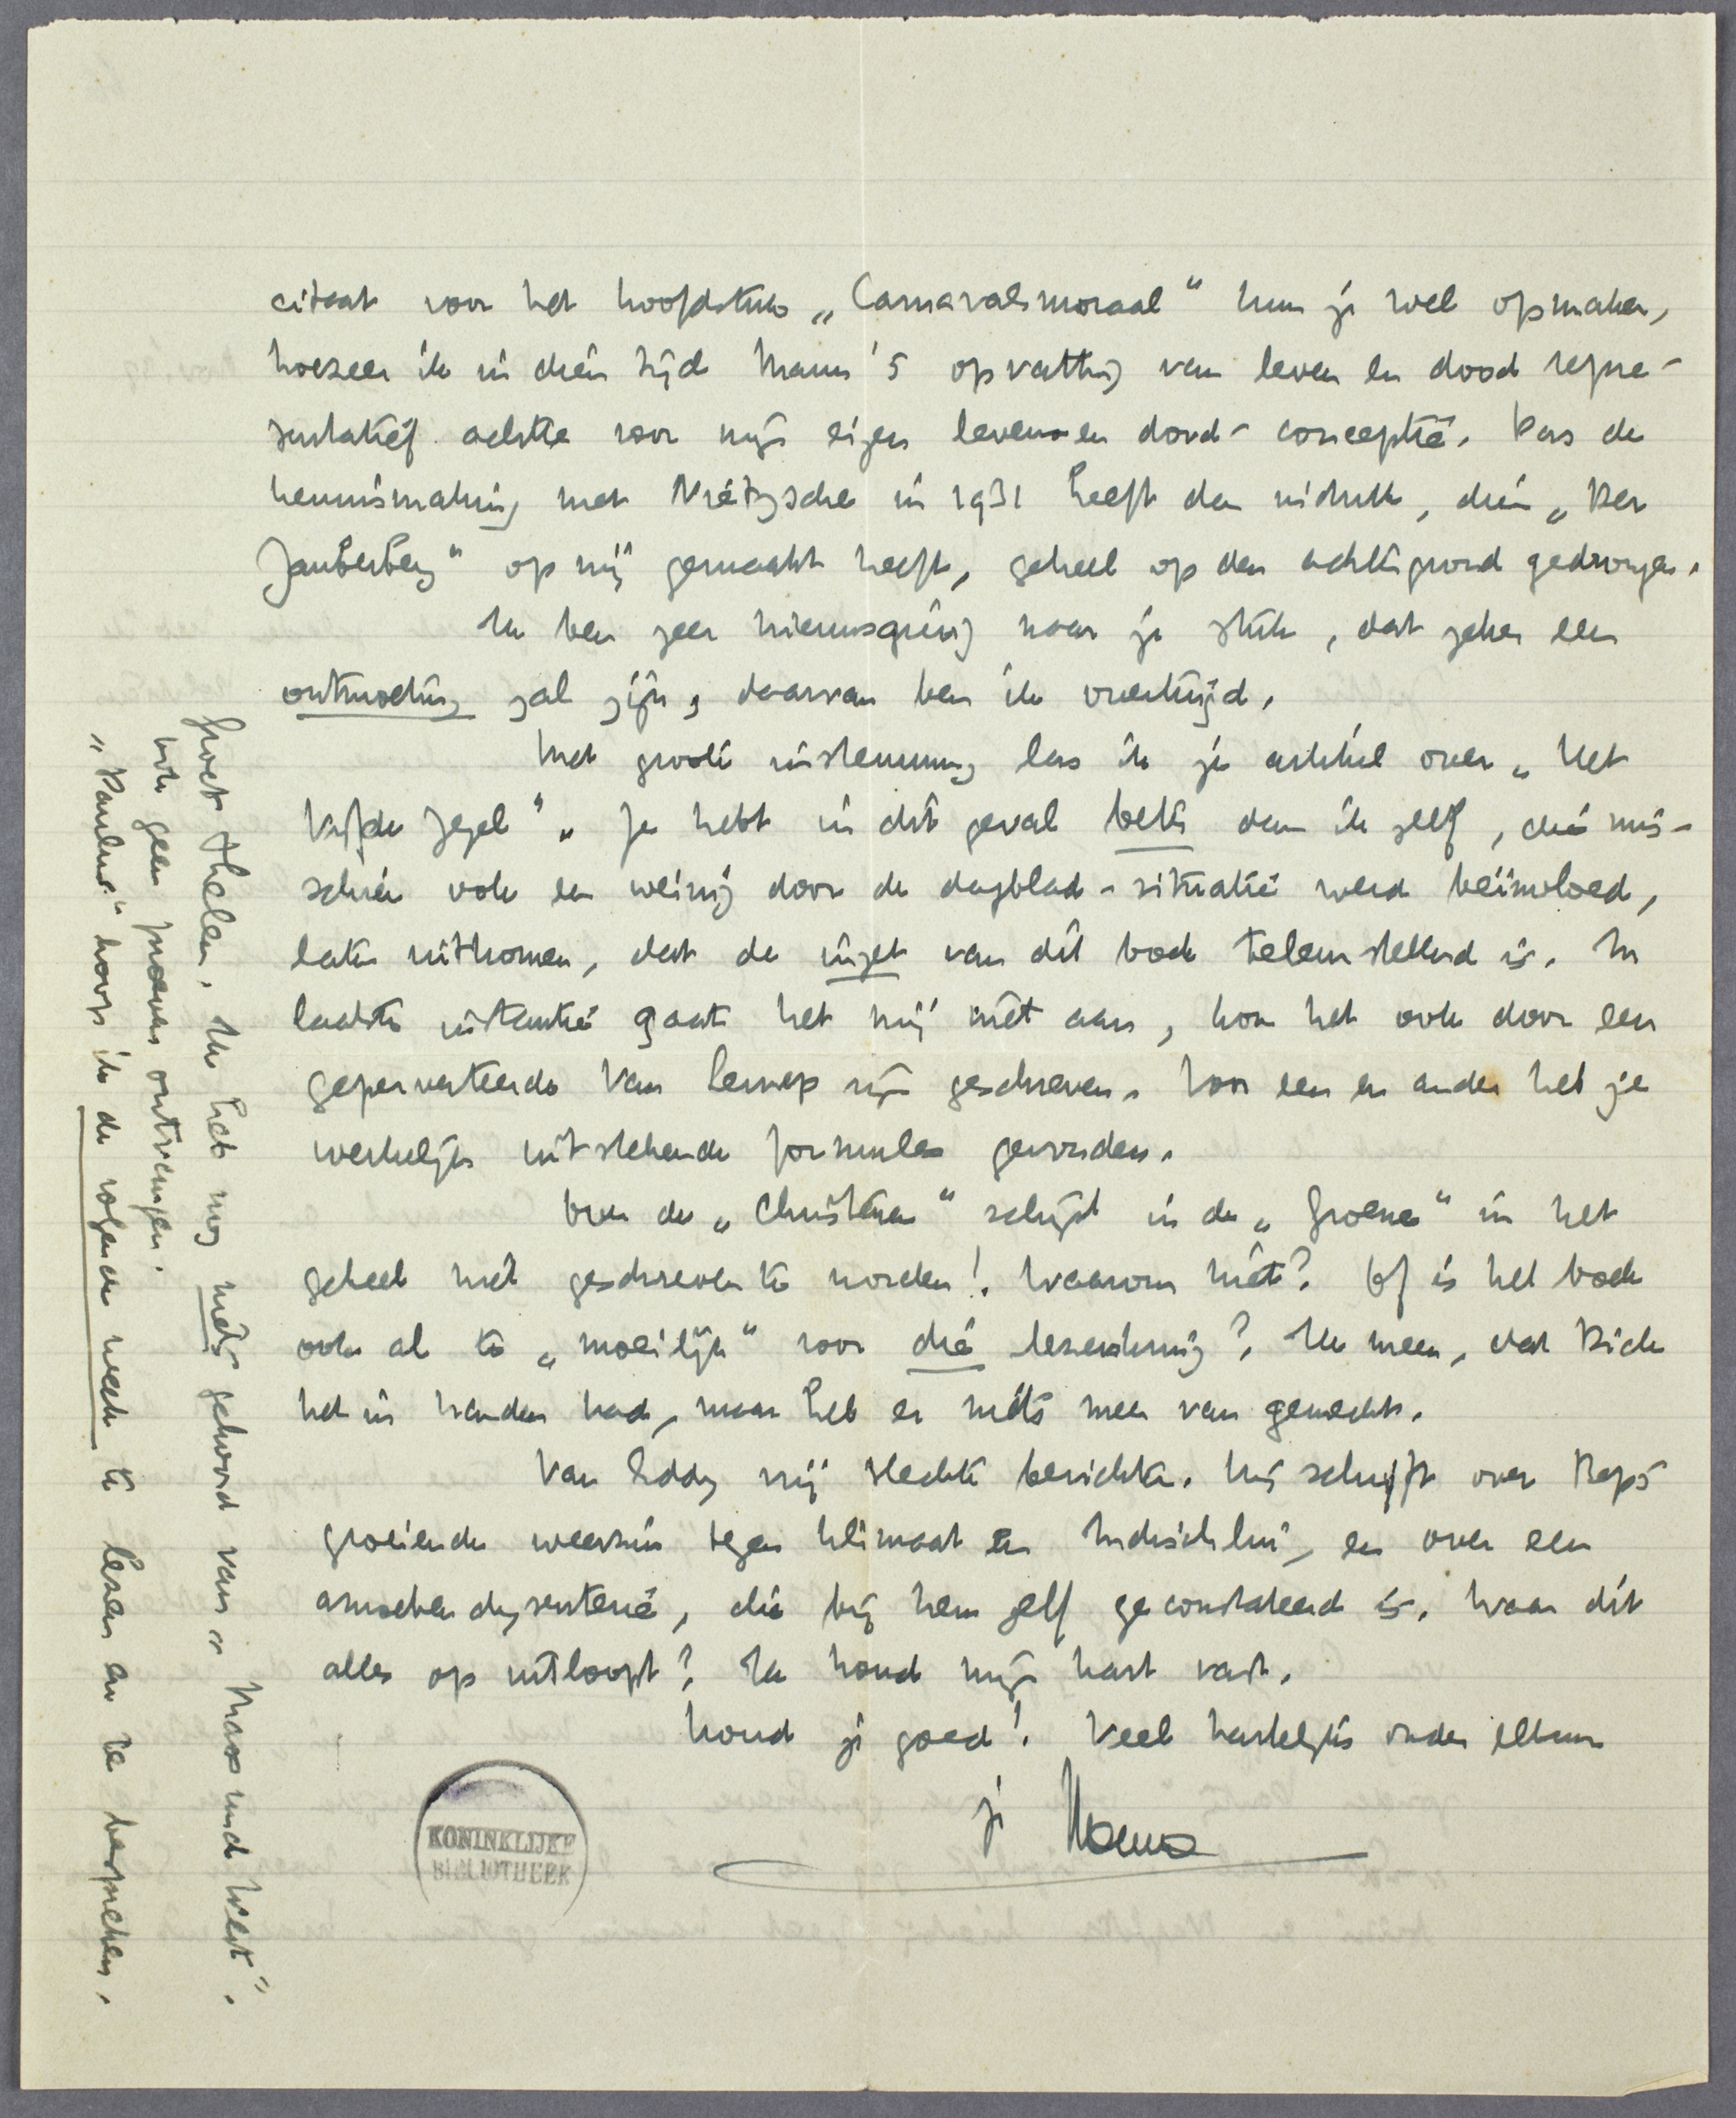 citaat voor het hoofdstuk „Carnavalsmoraal" kun je wel opmaken,
hoezeer ik in dien tijd Mann's opvatting van leven en dood repre-
sentatief achtte voor mijn eigen leven-en dood-conceptie. Pas de
kennismaking met Nietzsche in 1931 heeft den indruk, dien „Der
Zauberberg" op mij gemaakt heeft, geheel op den achtergrond gedrongen.
Ik ben zeer nieuwsgierig naar je stuk, dat zeker een
ontmoeting zal zijn, daarvan ben ik overtuigd.
Met groote instemming las ik je artikel over „Het
Vijfde Zegel". Je hebt in dit geval beter dan ik zelf, die mis-
schien ook een weinig door de dagblad-situatie werd beïnvloed,
laten uitkomen, dat de inzet van dit boek teleurstellend is. In
laatste instantie gaat het mij niet aan, hoe het ook door een
geperverteerde Van Lennep zijn geschreven. Voor een en ander heb je
werkelijk uitstekende formules gevonden.
Over de „Christenen" schijnt in de „Groene" in het
geheel niet geschreven te worden! Waarom niet? Of is het boek
ook al te „moeilijk" voor die lezerskring? Ik meen, dat Dick
het in handen had, maar heb er niets meer van gemerkt.
Van Eddy vrij slechte berichten. Hij schrijft over Beps
groeiende weerzin tegen klimaat en Indischlui, en over een
amoebendysenterie, die bij hem zelf geconstateerd is. Waar dit
alles op uitloopt? Ik houd mijn hart vast.
Houd je goed! Veel hartelijks onder elkaar
je Menno
KONINKLIJKE
BIBLIOTHEEK
Groet Thelen. Ik heb nog niets gehoord van „Mass und Wert",
ook geen proeven ontvangen.
„Paulus" hoop ik de volgende week te lezen en te bespreken.